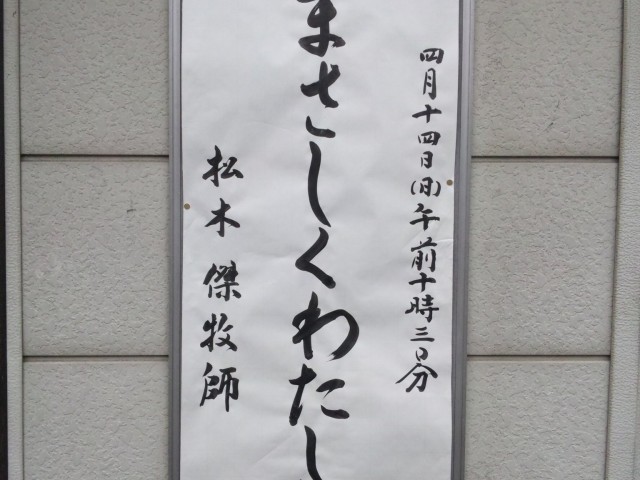 四月十四日(日)午前十時三〇分
まさしくわたし
松木 傑牧師